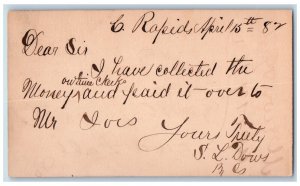 C. Rapids April 15th 82
Dear Sir
I have collected the
on time check
Money and paid it over to
Mr Ives
Yours Truly
S. L. Dows